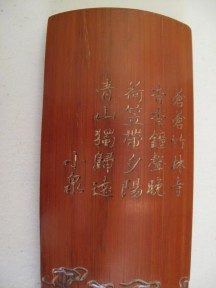 蒼蒼竹林寺
杳杳鐘聲晚
荷笠帶夕陽
青山獨歸遠
小泉